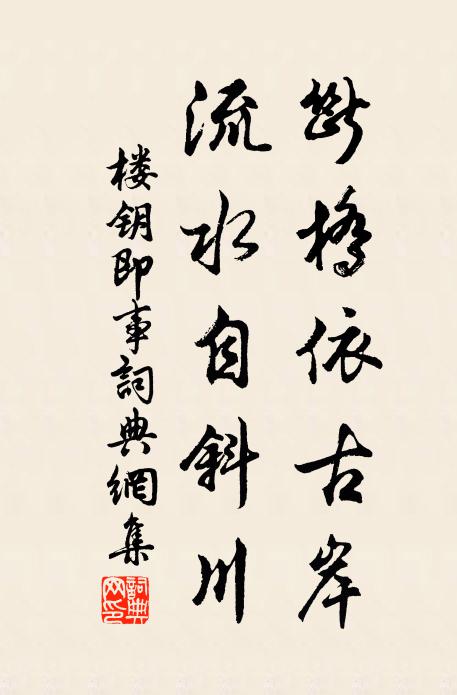 斷橋依古岸
流水自斜川
楼钥即事詞典網集
詞典网印